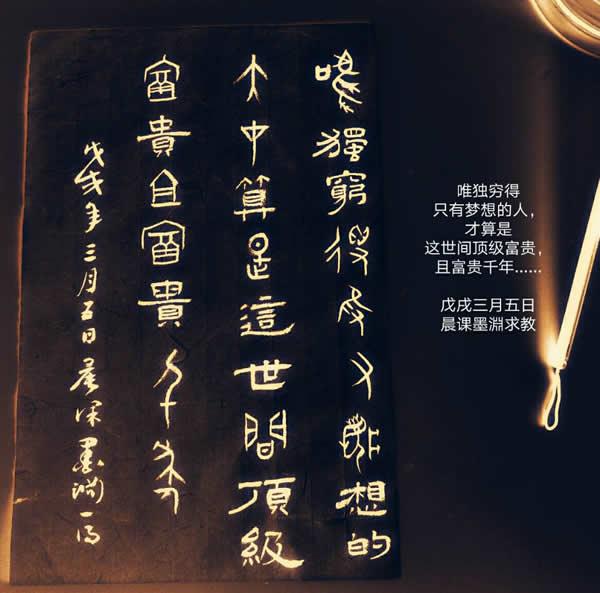 唯獨窮得有夢想的
才算是這世間頂級
富貴且富貴千年
戊戌年三月五日晨课墨渊
唯独穷得
只有梦想的人，
才算是
这世间顶级富贵，
且富贵千年......
戊戌三月五日
晨课墨淵求教